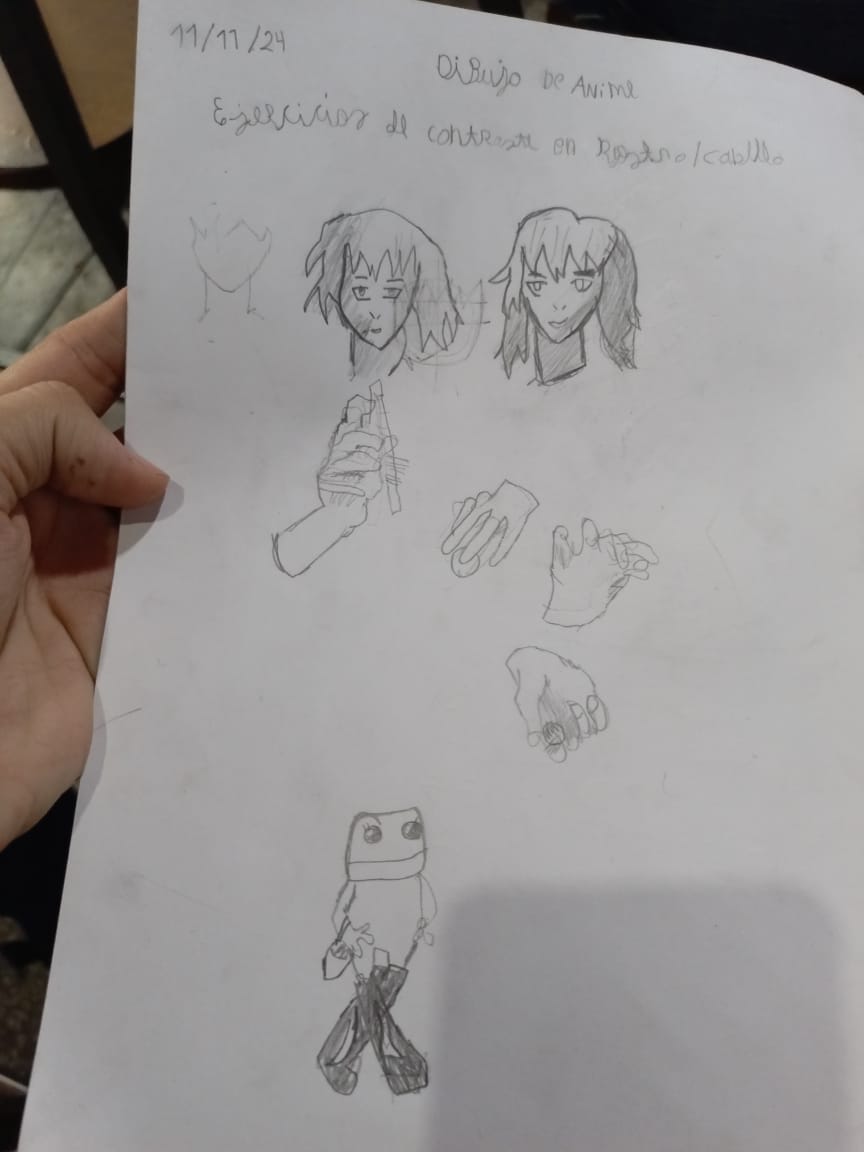 11/11/24
Dibujo de Anime
Ejercicios de contraste en Rostro/cabello